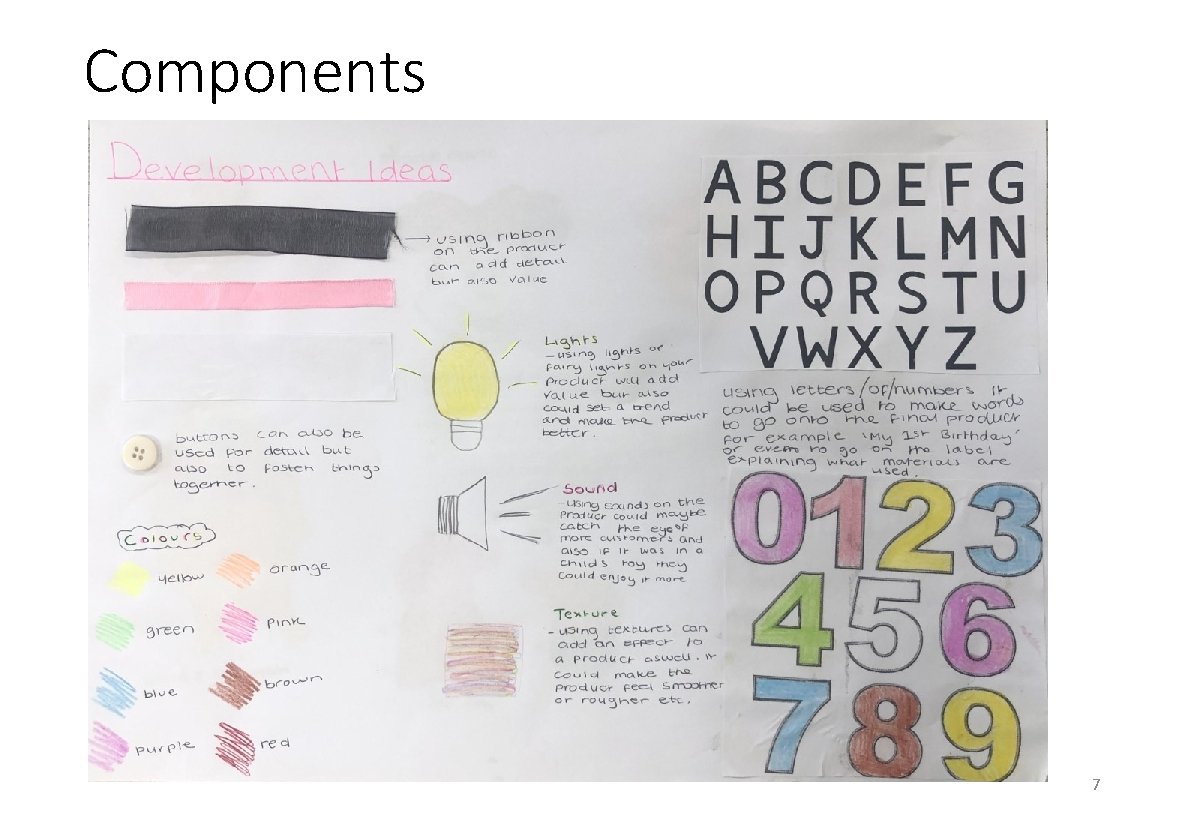 Components
Development Ideas
using ribbon
on the product
can add detail
but also value
Lights
- using lights or
fairy lights on your
product will add
value but also
could set a trend
and make the product
better.
buttons can also be
used for detail but
also to fasten things
together.
Sound
- using sounds on the
product could maybe
catch the eye of
more customers and
also if it was in a
childs toy they
could enjoy it more
Colours
yellow
orange
green
pink
blue
brown
purple
red
Texture
- using textures can
add an effect to
a product aswell. it
could make the
product feel smoother
or rougher etc.
ABCDEFG
HIJKLMN
OPQRSTU
VWXYZ
using letters/or/numbers it
could be used to make words
to go onto the final product
for example 'My 1st Birthday'
or even to go on the label
explaining what materials are
used.
0123
456
789
7